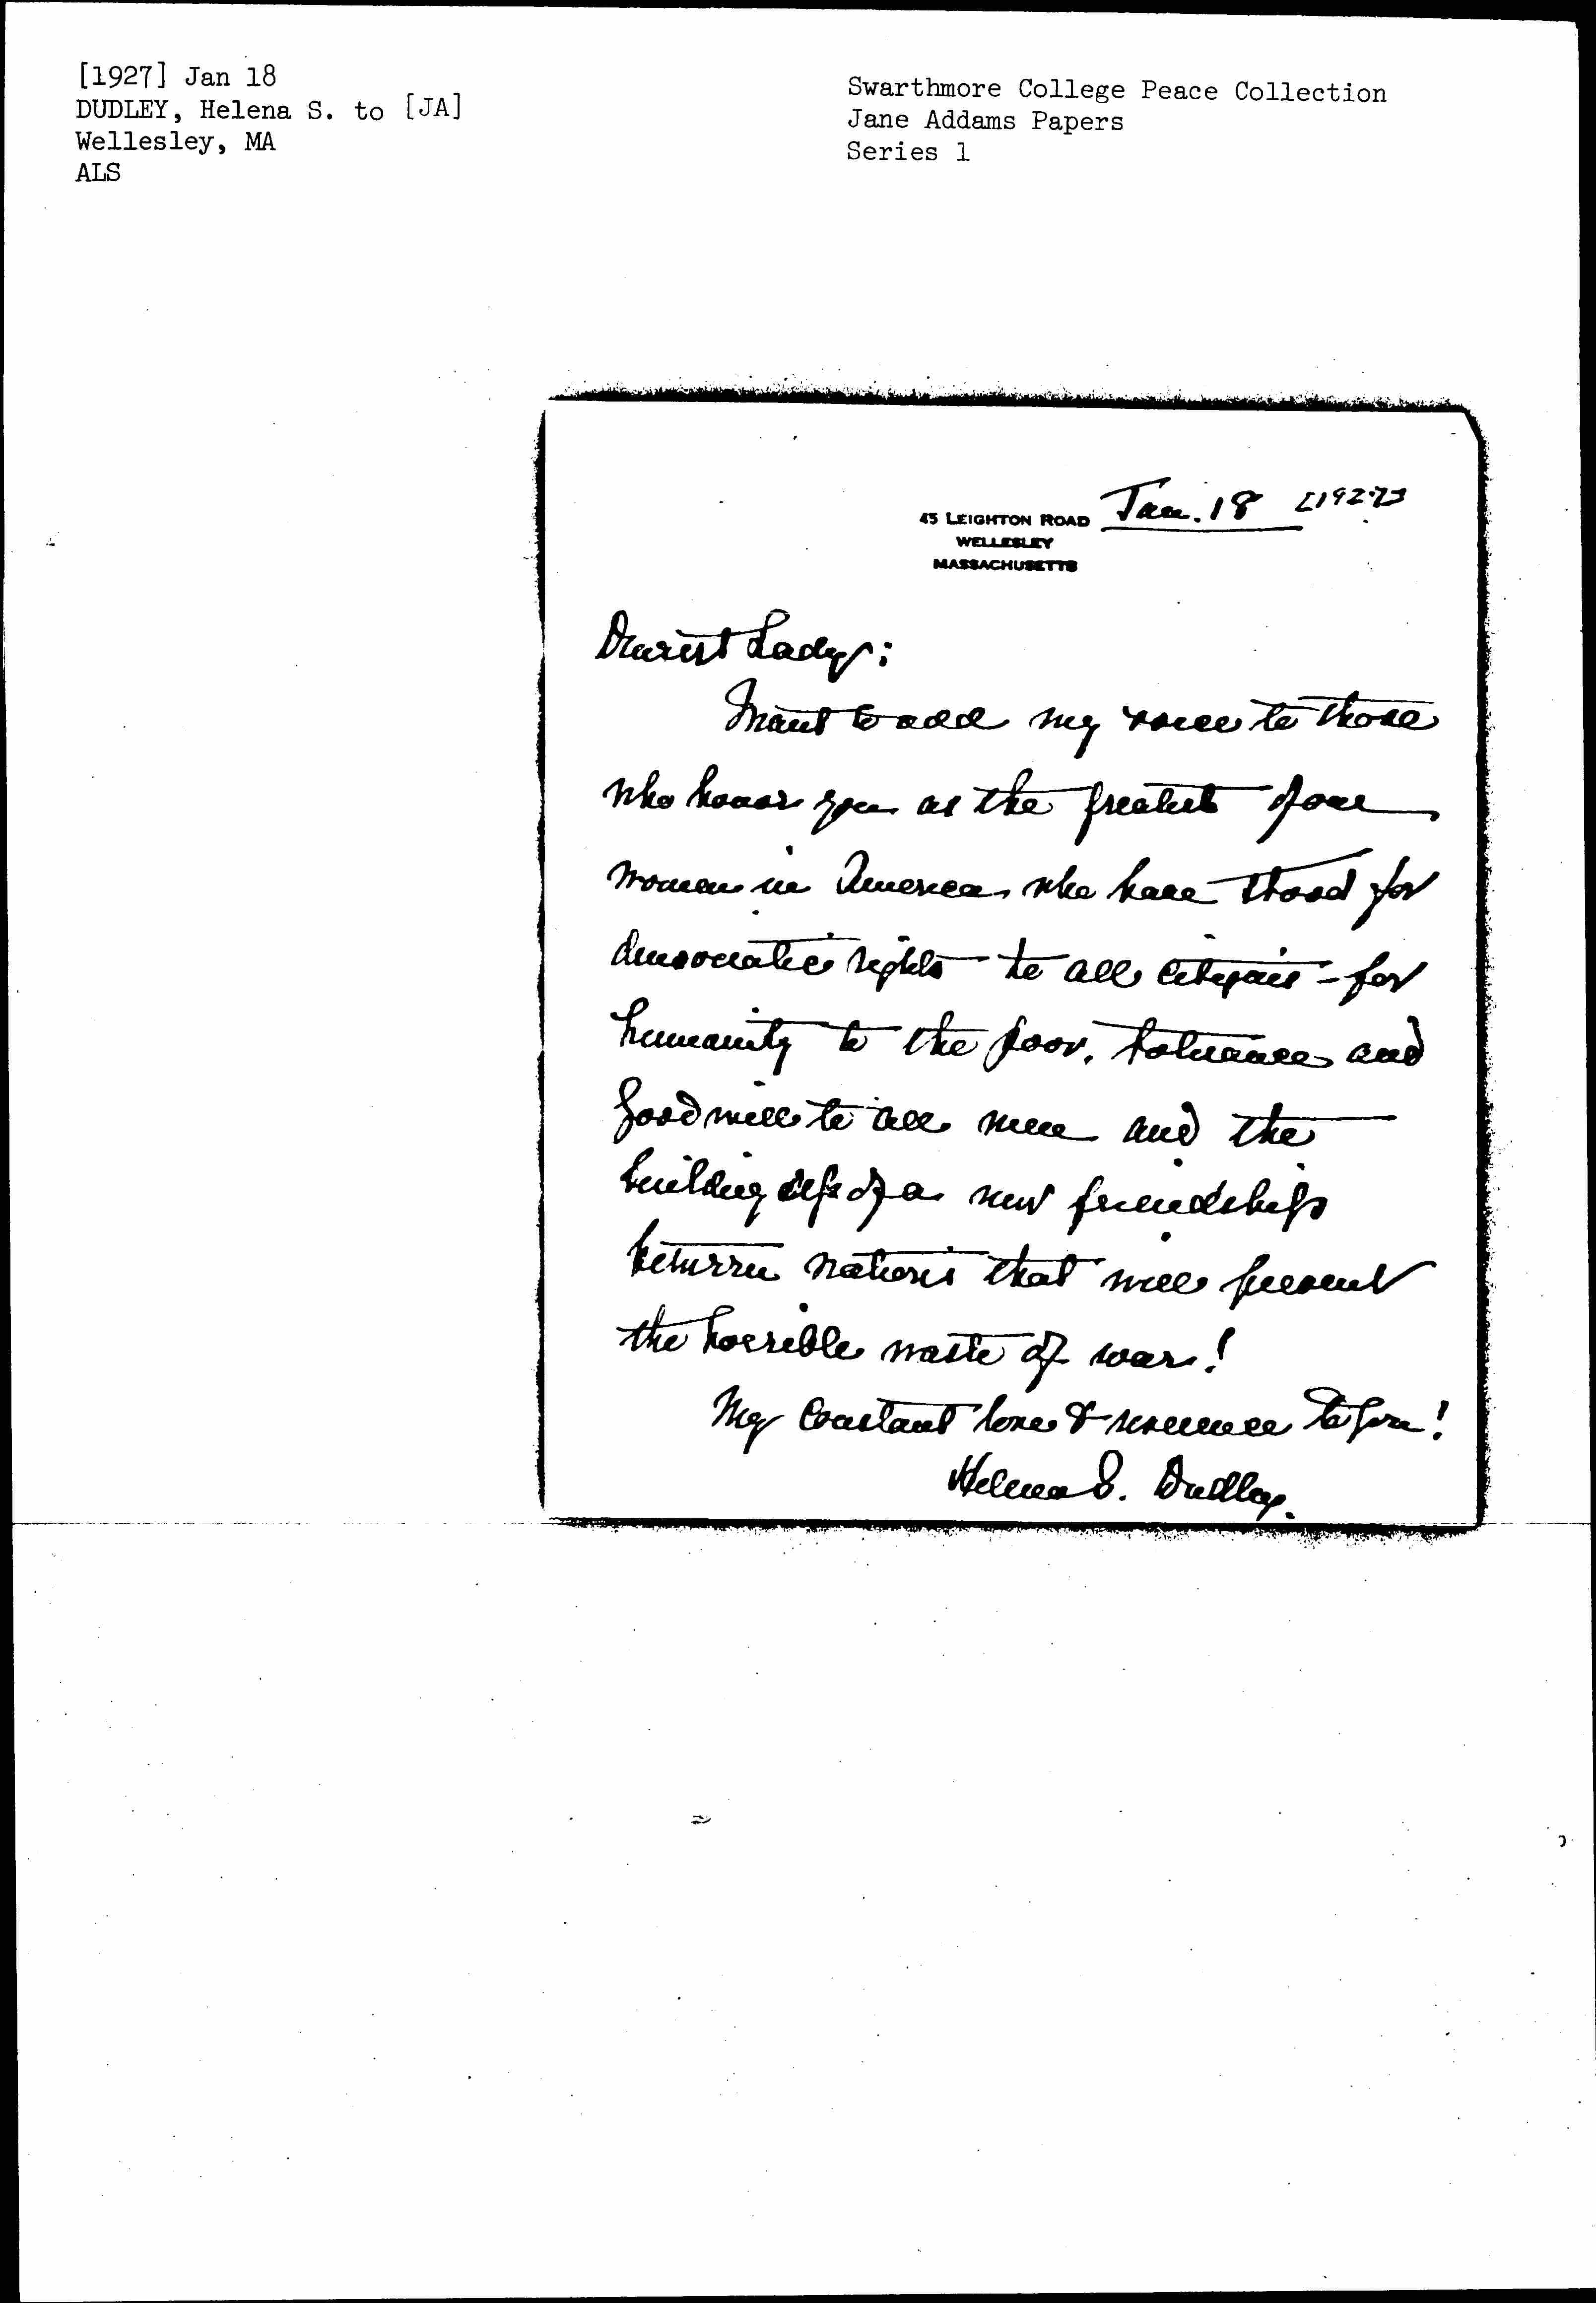 [1927] Jan 18
DUDLEY, Helena S. to [JA]
Wellesley, MA
ALS
Swarthmore College Peace Collection
Jane Addams Papers
Series 1
45 LEIGHTON ROAD
WELLESLEY
MASSACHUSETTS
Jan. 18 [1927]
Dearest Lady;
I want to add my voice to those
who honor you as the greatest of our
women in America who have stood for
democratic rights to all citizens - for
humanity to the poor, tolerance and
good will to all men and the
building up of a new friendship
between nations that will prevent
the horrible waste of war!
My constant love & reverence to you!
Helena S. Dudley.